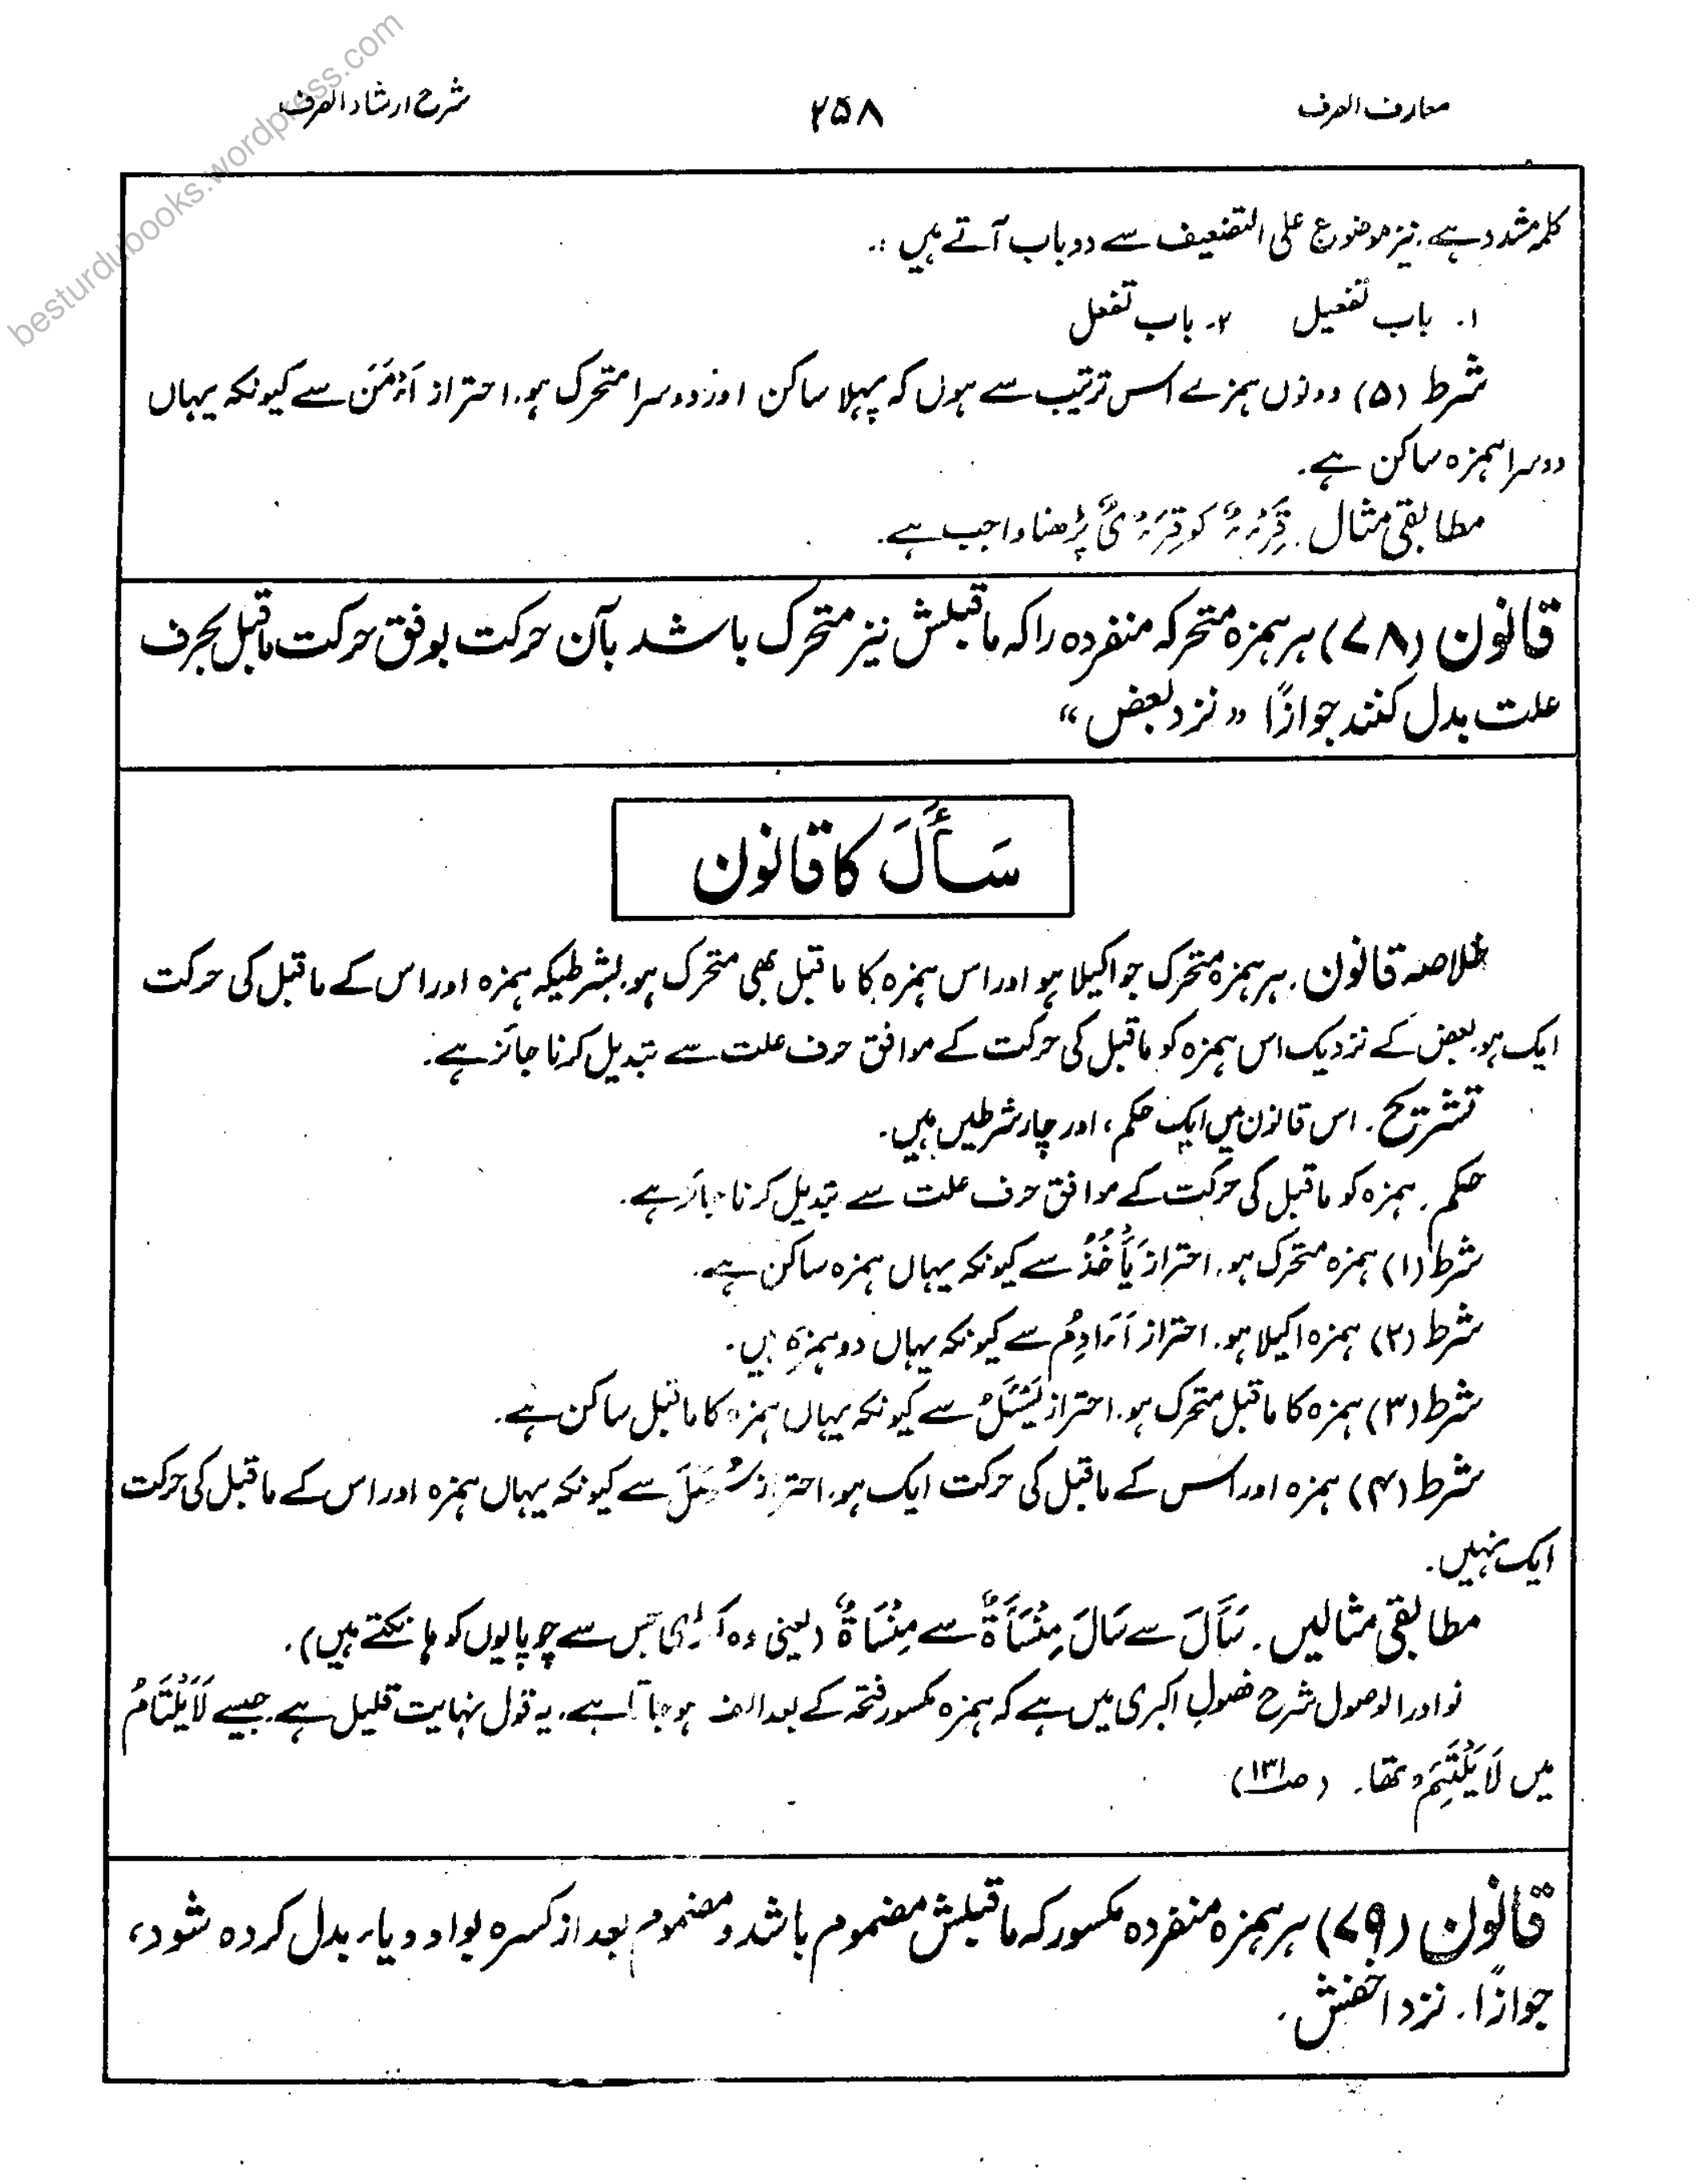 معارف الصرف
۲۵۸
شرح ارشاد الصرف
besturdubooks.wordpress.com
کلمہ مشدد ہے۔ نیز موضوع علی التضعیف سے دو باب آتے ہیں :۔
۱۔ باب تفعیل ۲۔ باب تفعل
شرط (۵) دونوں ہمزے اس ترتیب سے ہوں کہ پہلا ساکن اور دوسرا متحرک ہو۔ احتراز أَءْمَنَ سے کیونکہ یہاں
دوسرا ہمزہ ساکن ہے۔
مطابقی مثال۔ قِرَءْءٌ کو قِرَءْیٌ پڑھنا واجب ہے۔
قانون (۷۸) ہر ہمزہ متحرکہ منفردہ را کہ ماقبلش نیز متحرک باشد بآن حرکت بوفق حرکت ماقبل بحرف
علت بدل کنند جوازًا “نزد بعض“
سَأَلَ کا قانون
خلاصہ قانون۔ ہر ہمزہ متحرک جو اکیلا ہو اور اس ہمزہ کا ماقبل بھی متحرک ہو۔ بشرطیکہ ہمزہ اور اس کے ماقبل کی حرکت
ایک ہو۔ بعض کے نزدیک اس ہمزہ کو ماقبل کی حرکت کے موافق حرف علت سے تبدیل کرنا جائز ہے۔
تشریح۔ اس قانون میں ایک حکم، اور چار شرطیں ہیں۔
حکم۔ ہمزہ کو ماقبل کی حرکت کے موافق حرف علت سے تبدیل کرنا جائز ہے۔
شرط (۱) ہمزہ متحرک ہو۔ احتراز یَأْخُذُ سے کیونکہ یہاں ہمزہ ساکن ہے۔
شرط (۲) ہمزہ اکیلا ہو۔ احتراز أَءَادِمُ سے کیونکہ یہاں دو ہمزہ ہیں۔
شرط (۳) ہمزہ کا ماقبل متحرک ہو۔ احتراز یَسْئَلُ سے کیونکہ یہاں ہمزہ کا ماقبل ساکن ہے۔
شرط (۴) ہمزہ اور اس کے ماقبل کی حرکت ایک ہو۔ احتراز سے کیونکہ یہاں ہمزہ اور اس کے ماقبل کی حرکت
ایک نہیں۔
مطابقی مثالیں۔ سَأَلَ سے سَالَ مِنْسَأَةٌ سے مِنْسَاةٌ (یعنی وہ لکڑی جس سے چوپایوں کو ہانکتے ہیں)۔
نوادر الوصول شرح فصول اکبری میں ہے کہ ہمزہ مکسور فتحہ کے بعد الف ہو جاتا ہے۔ یہ قول نہایت قلیل ہے۔ جیسے لَا یَلْتَامُ
میں لَا یَلْتَئِمُ تھا۔ (صـ۱۳۱)
قانون (۷۹) ہر ہمزہ منفردہ مکسور کہ ماقبلش مضموم باشد و مضموم بعد از کسرہ بواو و یاء بدل کردہ شود،
جوازًا۔ نزد اخفش۔